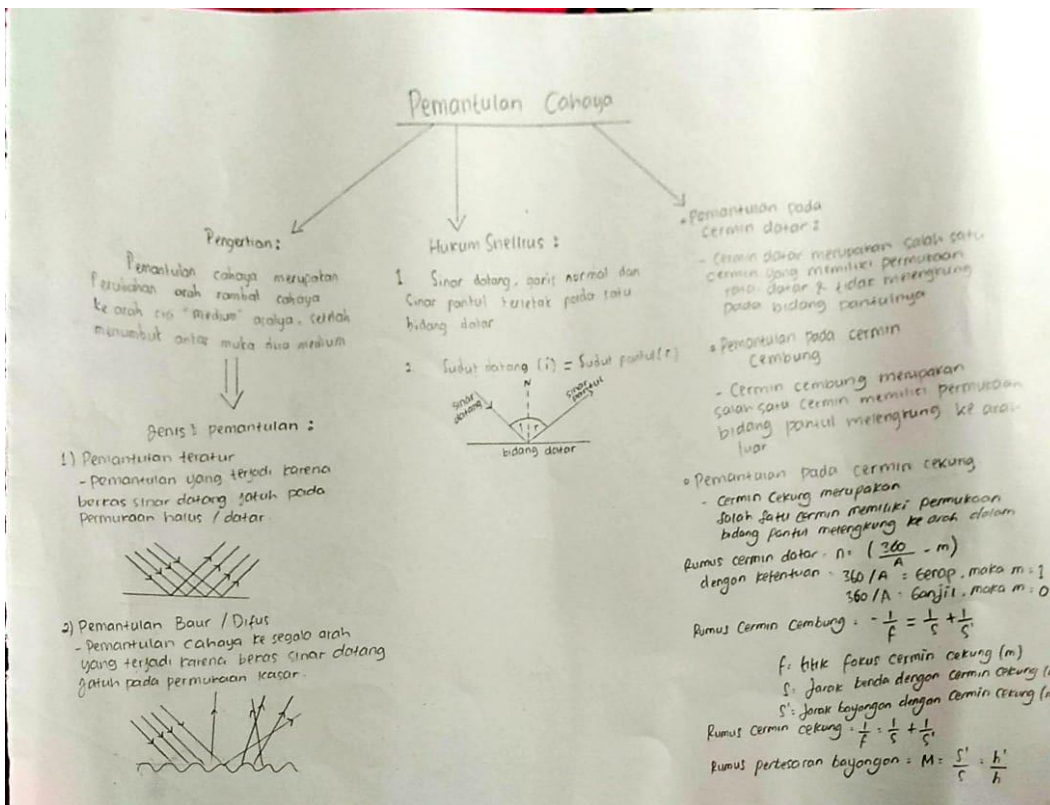 Pemantulan Cahaya
Pengertian :
Pemantulan cahaya merupakan
Perubahan arah rambat cahaya
ke arah sisi "medium" asalya, setelah
menumbuk antar muka dua medium
Jenis² pemantulan :
1) Pemantulan teratur
- pemantulan yang terjadi karena
berkas sinar datang jatuh pada
Permukaan halus / datar.
2) Pemantulan Baur / Difus
- Pemantulan cahaya ke segala arah
yang terjadi karena beras sinar datang
jatuh pada permukaan kasar.
Hukum Snellius :
1 Sinar datang, garis normal dan
Sinar pantul terletak pada satu
bidang datar
2. Sudut datang (i) = Sudut pantul (r)
N
sinar datang
sinar pantul
i r
bidang datar
• Pemantulan pada
cermin datar :
- Cermin datar merupakan salah satu
cermin yang memiliki permukaan
rata datar & tidak melengkung
pada bidang pantulnya
• Pemantulan pada cermin
cembung
- Cermin cembung merupakan
salah satu cermin memiliki permukaan
bidang pantul melengkung ke arah
luar
• Pemantulan pada cermin cekung
- Cermin Cekung merupakan
Salah Satu cermin memiliki permukaan
bidang pantul melengkung ke arah dalam
Rumus cermin datar = n = (360/A - m)
dengan ketentuan = 360/A = Genap, maka m = 1
360/A = Ganjil, maka m = 0
Rumus Cermin Cembung = -1/f = 1/s + 1/s'
f = titik fokus cermin cekung (m)
S = Jarak benda dengan cermin cekung
S' = Jarak bayangan dengan cermin cekung
Rumus cermin cekung = 1/f = 1/s + 1/s'
Rumus perbesaran bayangan = M = s'/s = h'/h